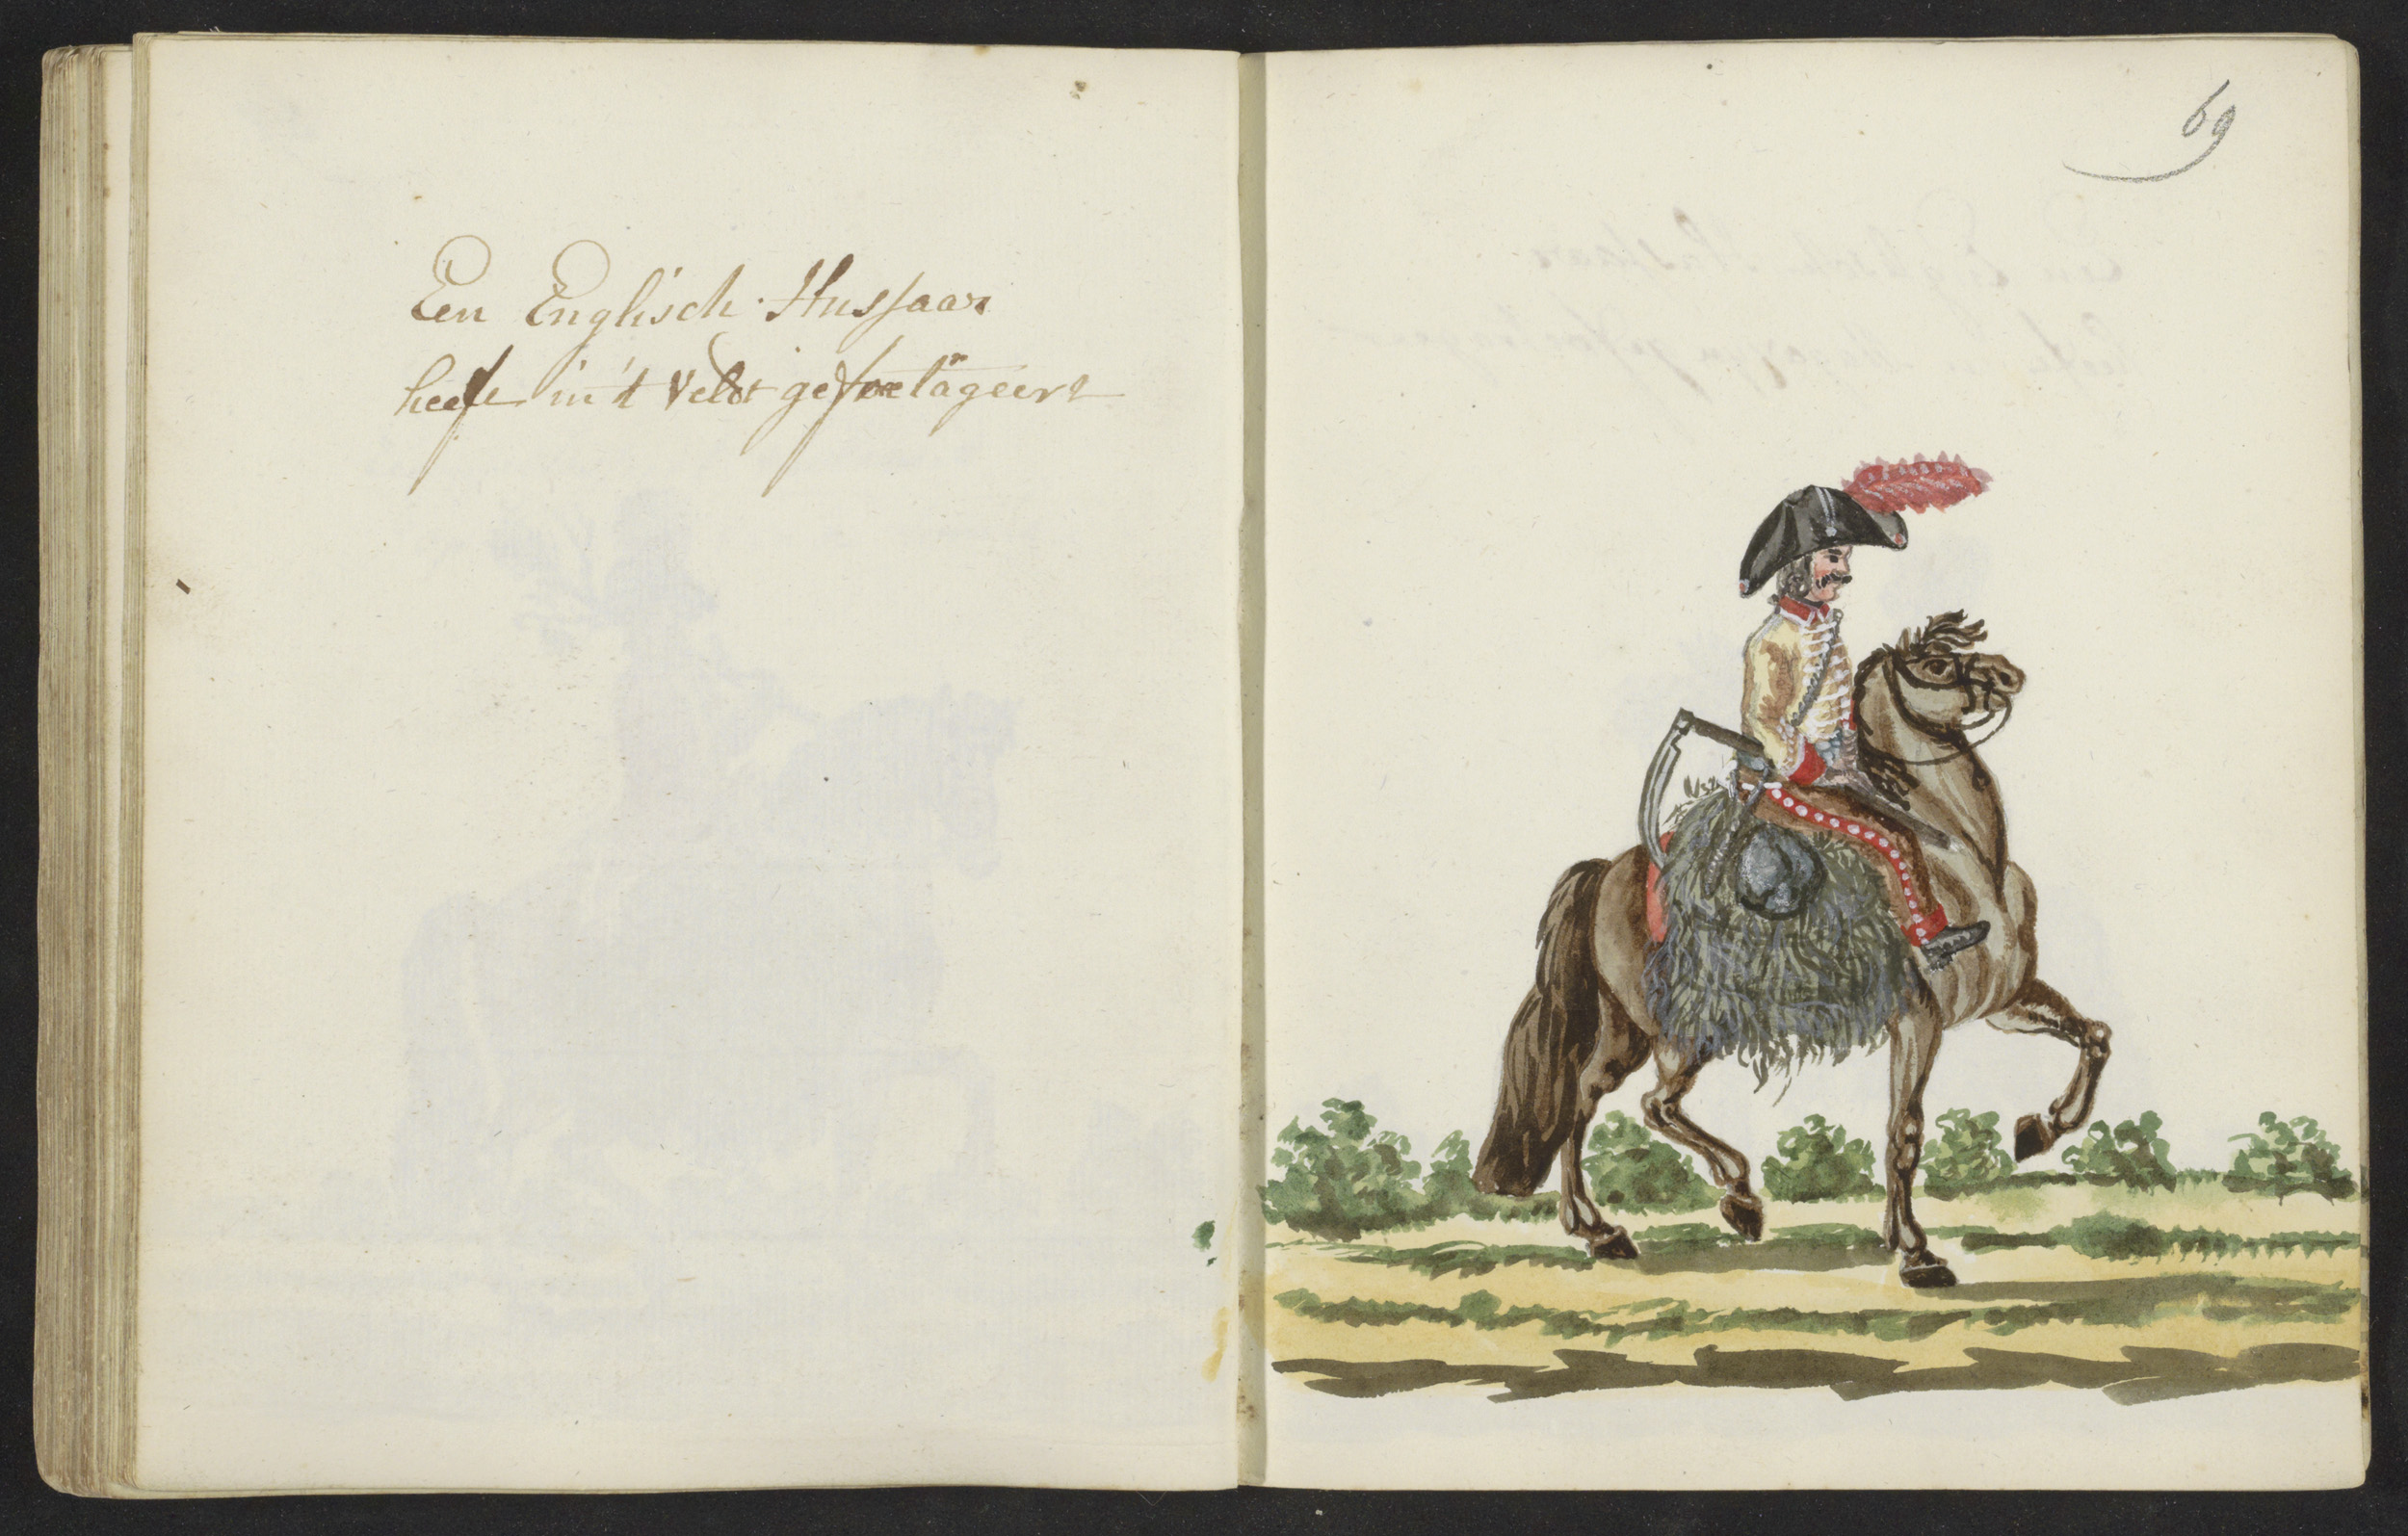 Een Englisch Hussaar
heeft in't Veldt gefoelageert
69